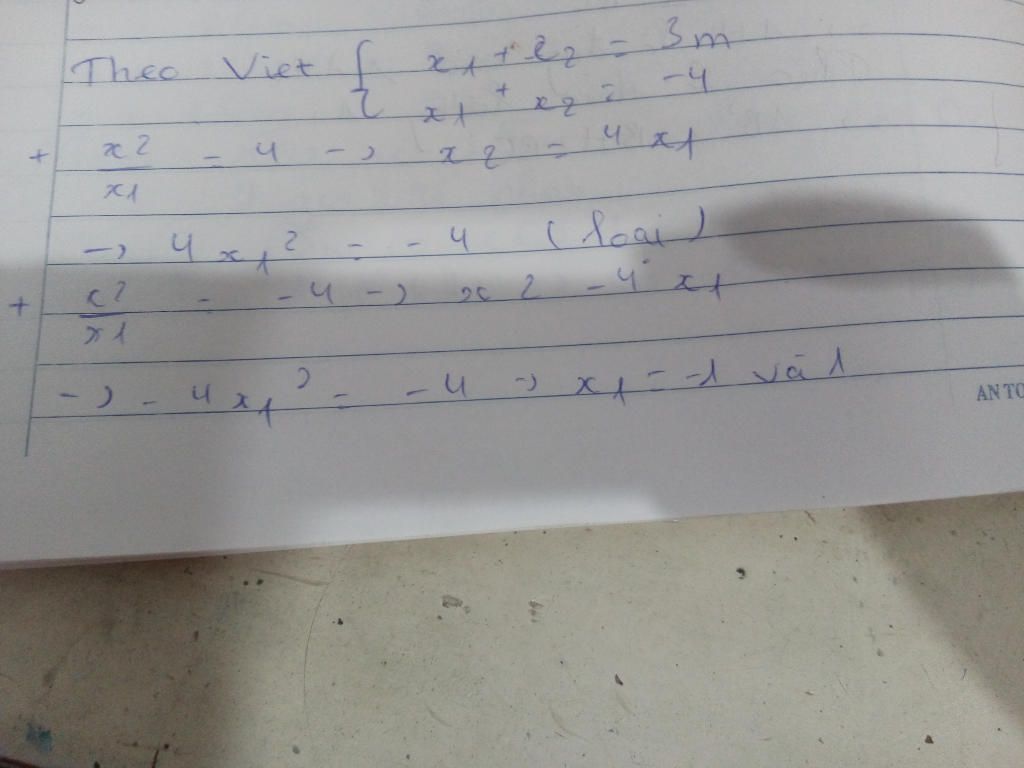 Theo Viet { x1 + x2 = 3m
x1 + x2 = -4
+ x2/x1 = 4 -> x2 = 4x1
-> 4x1² = -4 (loại)
+ x2/x1 = -4 -> x2 -4x1
-> -4x1² = -4 -> x1 = -1 và 1
ANTO